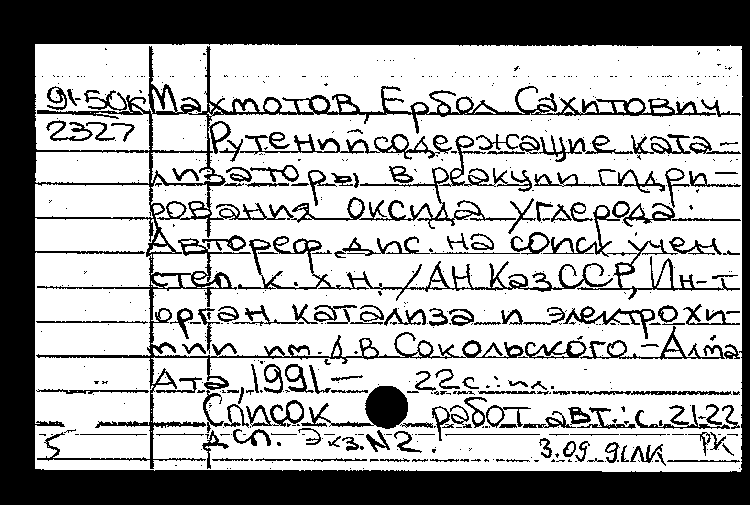 91-50К Махмотов, Ербол Сахитович
2327 Рутенийсодержащие ката-
лизаторы в реакции гидри-
рования оксида углерода.
Автореф. дис. на соиск. учен.
степ. к. х. н. /АН КазССР, Ин-т
орган. катализа и электрохи-
мии им. Д.В. Сокольского. - Алма
Ата, 1991. - 22 с.: ил.
Список работ авт.: с. 21-22
5 дсп. Экз. №2. 3.09.91ЛК РК